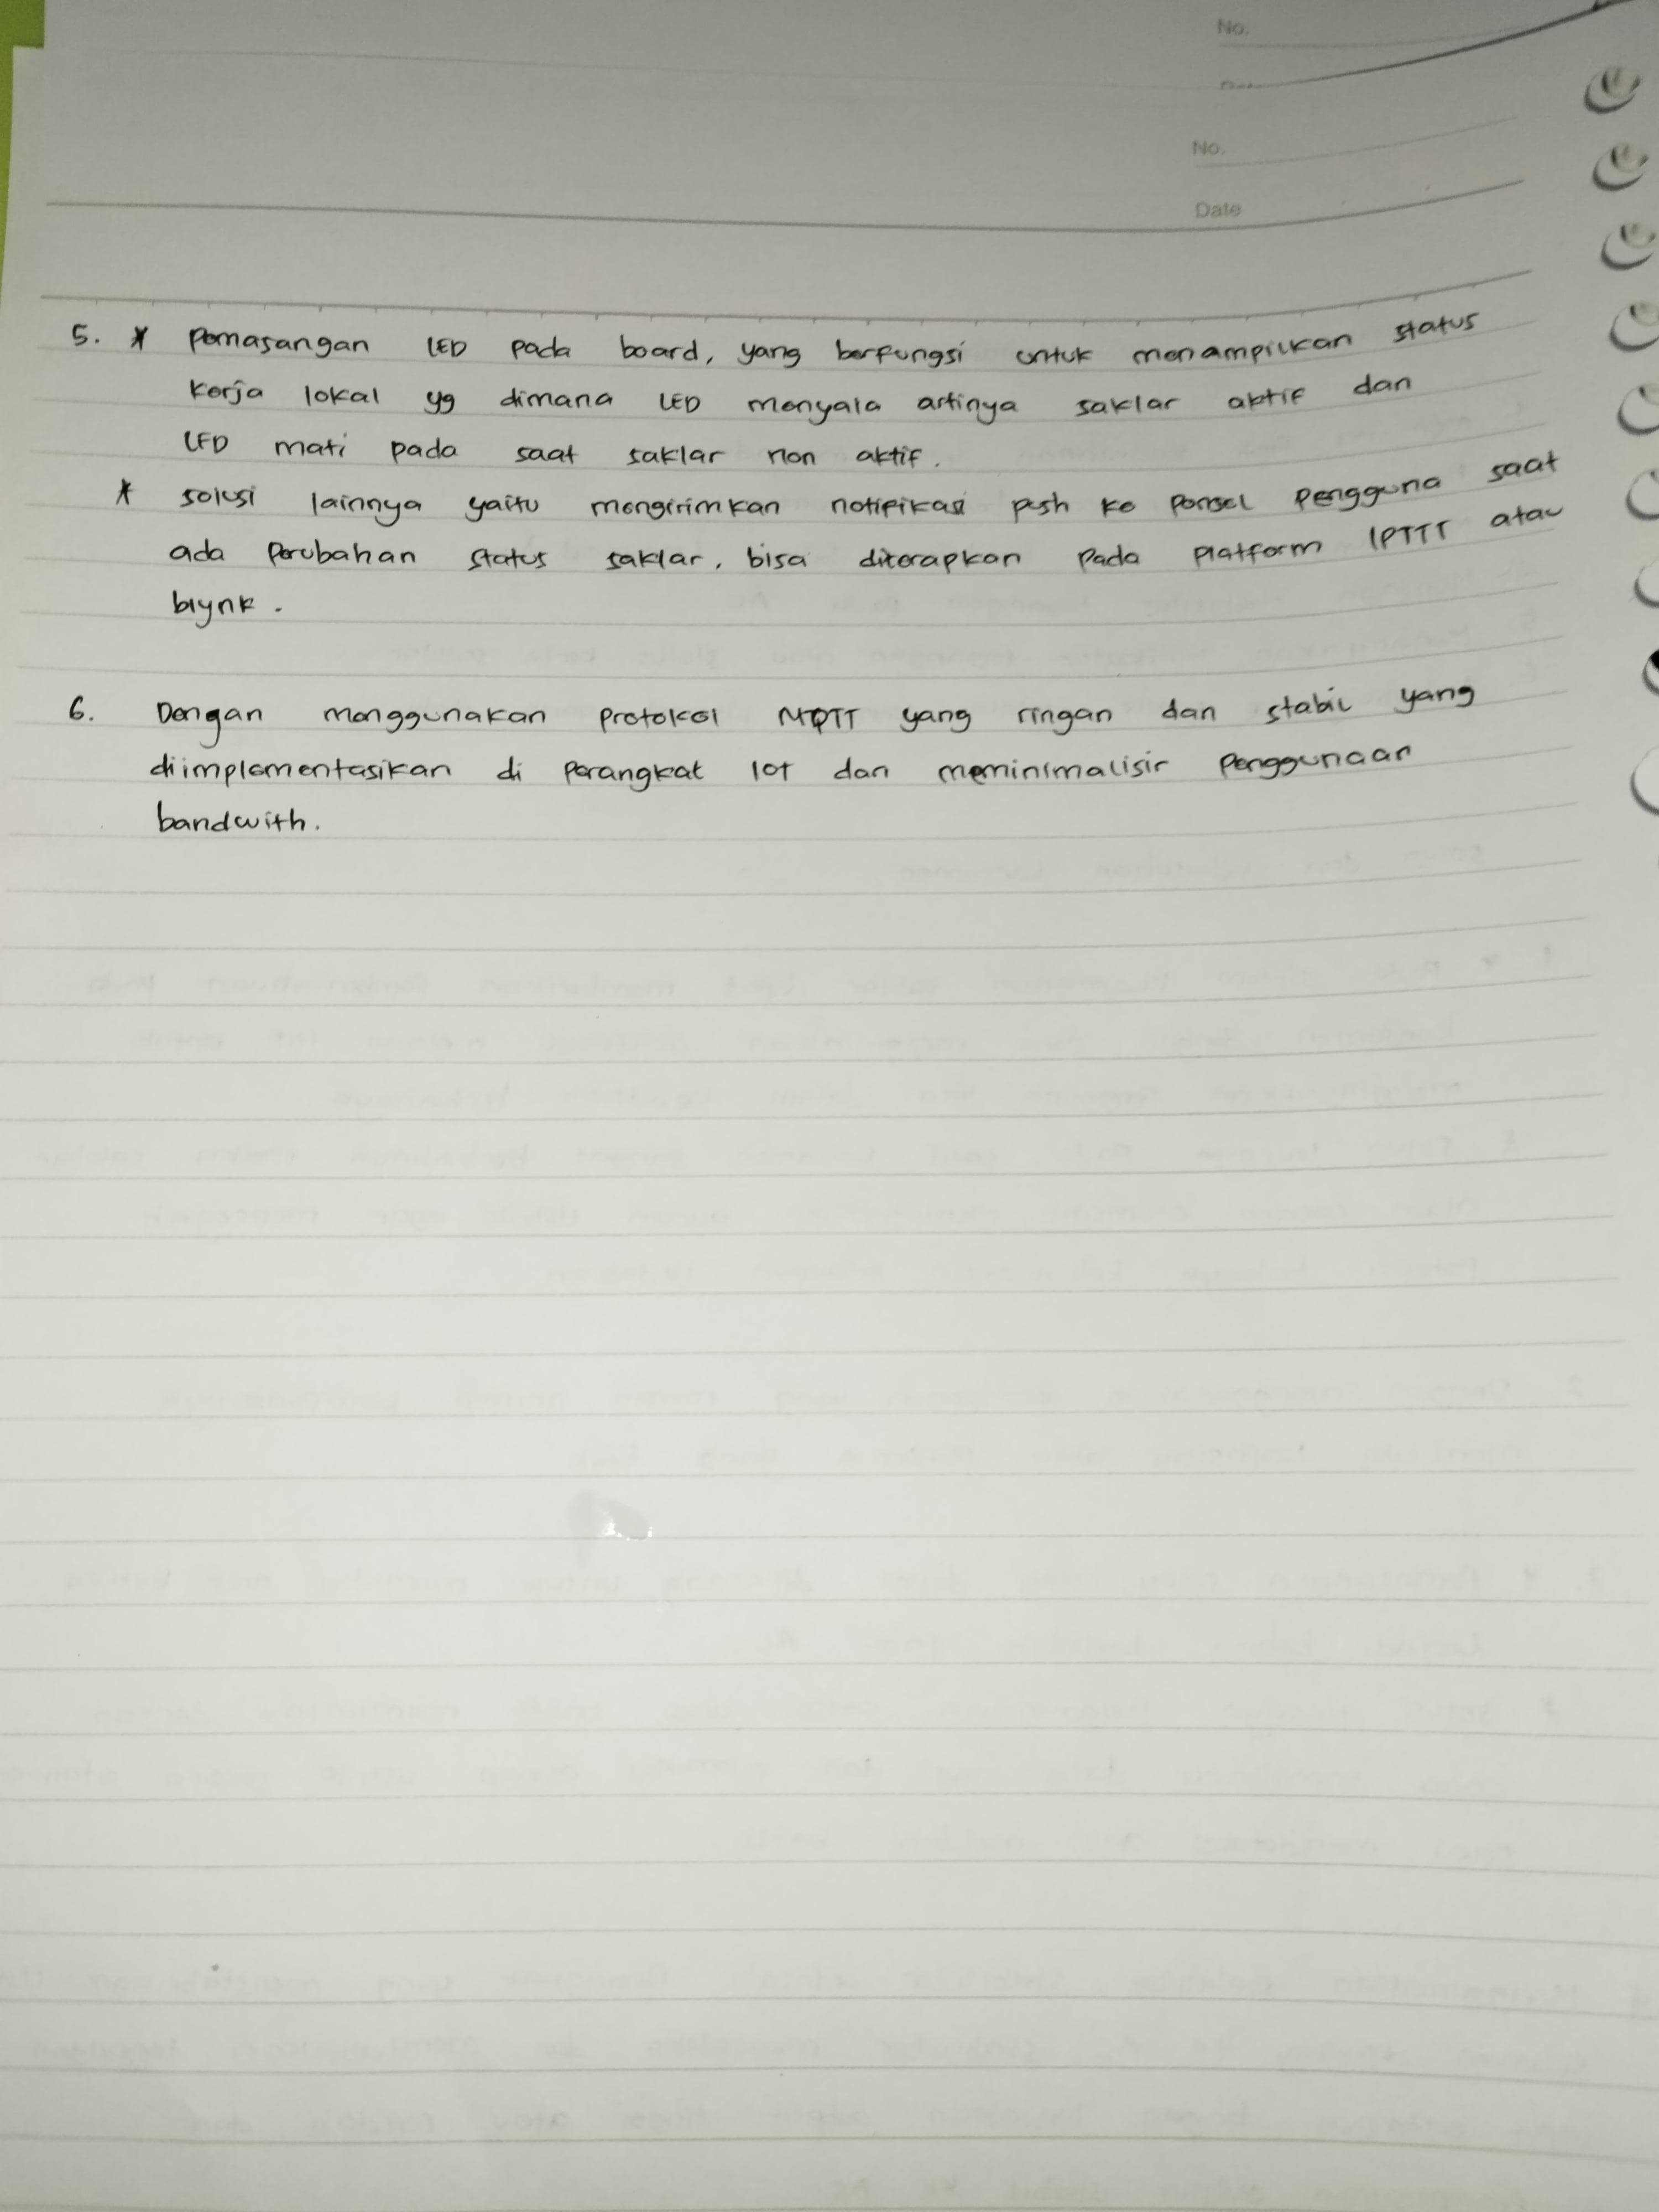 No.
No.
Date
5. * Pemasangan LED pada board, yang berfungsi untuk menampilkan status
kerja lokal yg dimana LED menyala artinya saklar aktif dan
LED mati pada saat saklar non aktif.
* solusi lainnya yaitu mengirimkan notifikasi push ke ponsel pengguna saat
ada perubahan status saklar, bisa diterapkan pada platform IPTTT atau
blynk.
6. Dengan menggunakan protokol MQTT yang ringan dan stabil yang
diimplementasikan di perangkat IOT dan meminimalisir penggunaan
bandwith.